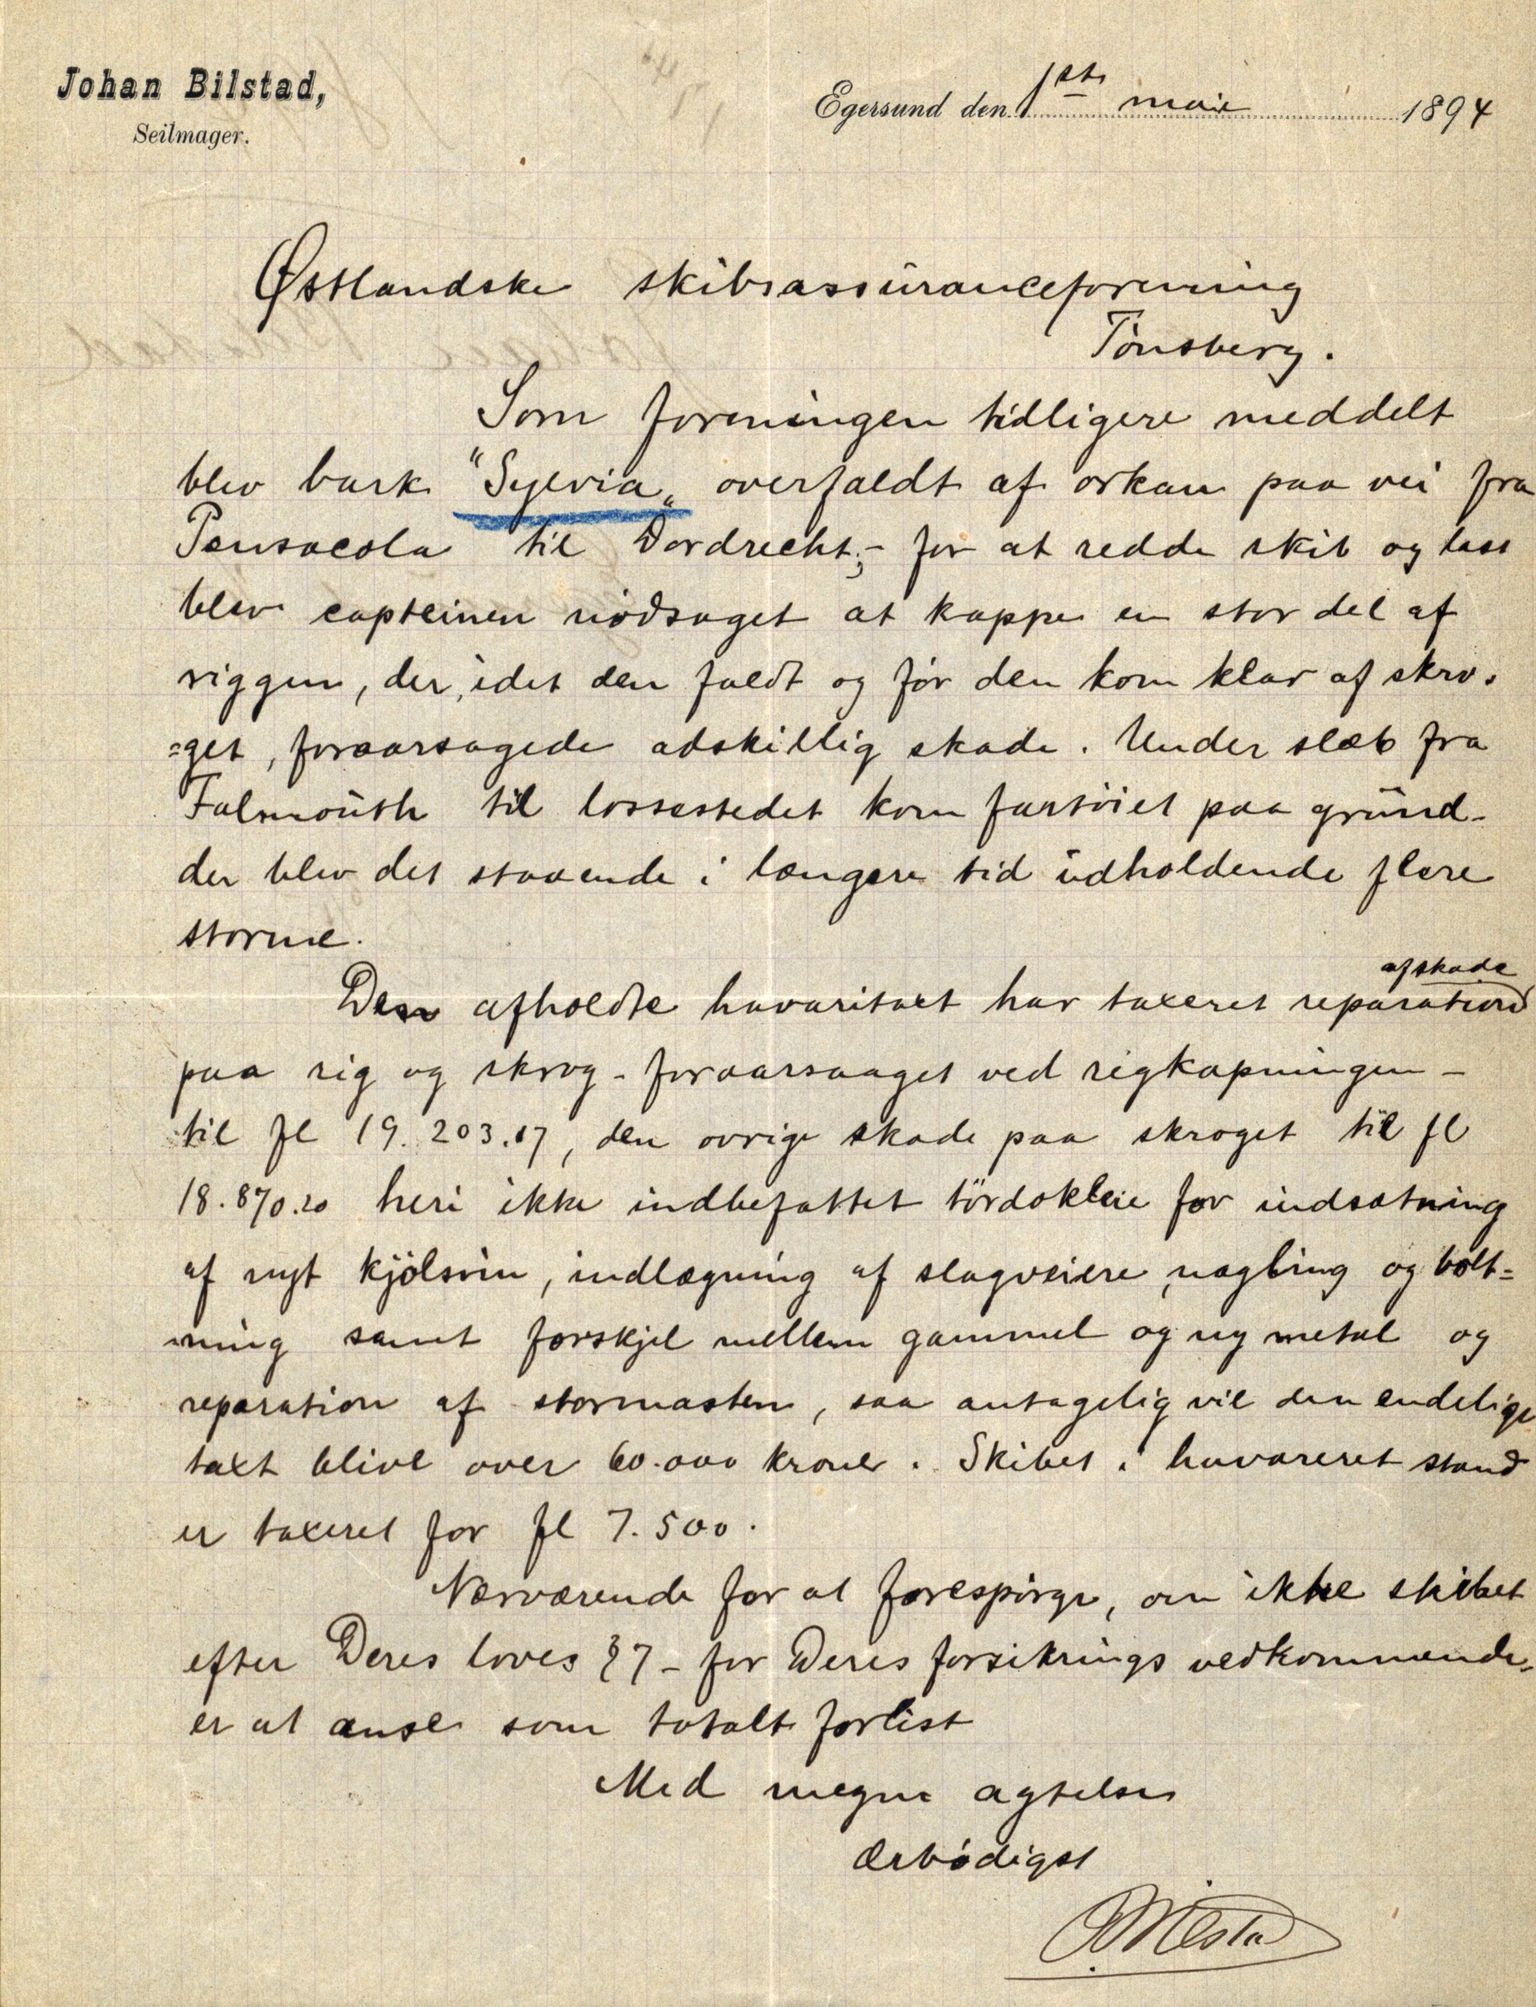 Johan Bilstad,
Seilmager.
Egersund den 1ste mai 1894
Østlandske skibsassuranceforening
Tönsberg.
Som foreningen tidligere meddelt
blev bark "Sylvia„ overfaldt af orkan paa vei fra
Pensacola til Dordrecht;- for at redde skib og last
blev capteinen nödsaget at kappe en stor del af
riggen, der, idet den faldt og för den kom klar af skro-
=get, foraarsagede adskillig skade. Under slæb fra
Falmouth til lossestedet kom fartöiet paa grund-
der blev det staaende i længere tid udholdende flere
storme.
Den afholdte havaritaxt har taxeret reparation af skade
paa rig og skrog - foraarsaaget ved rigkapningen -
til fl 19.203.17, den ovrige skade paa skroget til fl
18.870.20 heri ikke indbefattet tördokleie for indsætning
af nyt kjölsvin, indlægning af slagveiere, nagling og bolt=
ning samt forskjel mellem gammel og ny metal og
reparation af stormasten, saa antagelig vil den endelige
taxt blive over 60.000 kroner. Skibet i havareret stand
er taxeret for fl 7.500.
Nærværende for at forespörge, om ikke skibet
efter Deres loves § 7 - for Deres forsikrings vedkommende-
er at anse som totalt forlist
Med megen agtelse
Ærbödigst